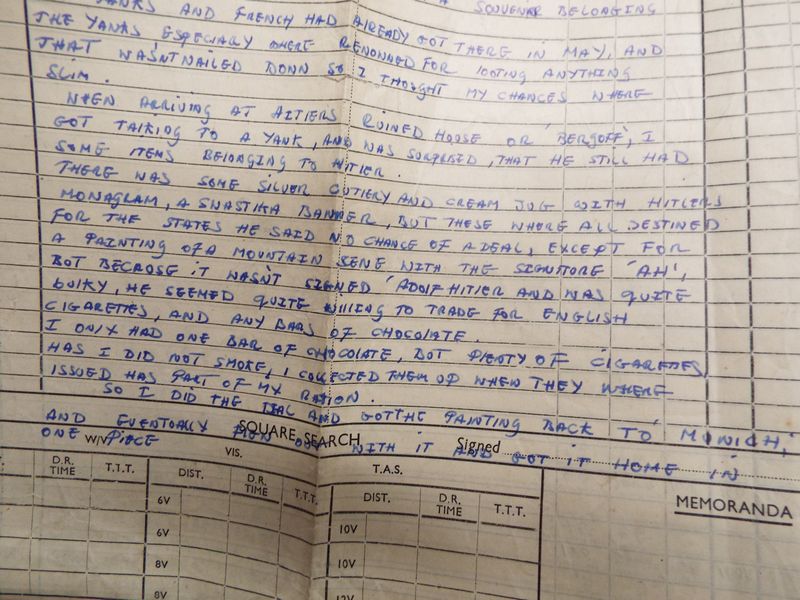 A SOUVENIR BELONGING
YANKS AND FRENCH HAD ALREADY GOT THERE IN MAY, AND
THE YANKS ESPECIALY WHERE RENONNED FOR LOOTING ANYTHING
THAT WASNT NAILED DONN SO I THOUGHT MY CHANCES WHERE
SLIM.
WHEN ARRIVING AT HITLERS RUINED HOUSE OR 'BERGOFF', I
GOT TALKING TO A YANK, AND WAS SURPRISED, THAT HE STILL HAD
SOME ITEMS BELONGING TO HITLER.
THERE WAS SOME SILVER CUTLERY AND CREAM JUG WITH HITLERS
MONAGRAM, A SWASTIKA BANNER, BUT THESE WHERE ALL DESTINED
FOR THE STATES HE SAID NO CHANCE OF A DEAL, EXCEPT FOR
A PAINTING OF A MOUNTAIN SENE WITH THE SIGNTURE 'AH',
BUT BECAUSE IT WASN'T SIGNED 'ADOLF HITLER AND WAS QUITE
BULKY, HE SEEMED QUITE WILLING TO TRADE FOR ENGLISH
CIGARETTES, AND ANY BARS OF CHOCOLATE.
I ONLY HAD ONE BAR OF CHOCOLATE, BUT PLENTY OF CIGARETTES,
HAS I DID NOT SMOKE, I COLLECTED THEM UP WHEN THEY WHERE
ISSUED HAS PART OF MY RATION.
SO I DID THE DEAL AND GOT THE PAINTING BACK TO MUNICH,
AND EVENTUALLY WITH IT AND GOT IT HOME IN
ONE PIECE
SQUARE SEARCH Signed
W/V VIS. T.A.S.
D.R. TIME T.T.T. DIST. D.R. TIME T.T.T. DIST. D.R. TIME T.T.T. MEMORANDA
6V 10V
6V 10V
8V 12V
8V